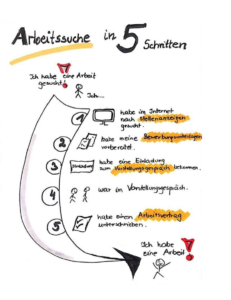 Arbeitssuche in 5 Schritten
Ich habe eine Arbeit
gesucht!
Ich...
1 habe im Internet
nach Stellenanzeigen
gesucht.
2 habe meine Bewerbungsunterlagen
vorbereitet.
3 Einladung habe eine Einladung
zum Vorstellungsgespräch bekommen.
4 war im Vorstellungsgespräch.
5 habe einen Arbeitsvertrag
unterschrieben.
Ich habe
eine Arbeit!